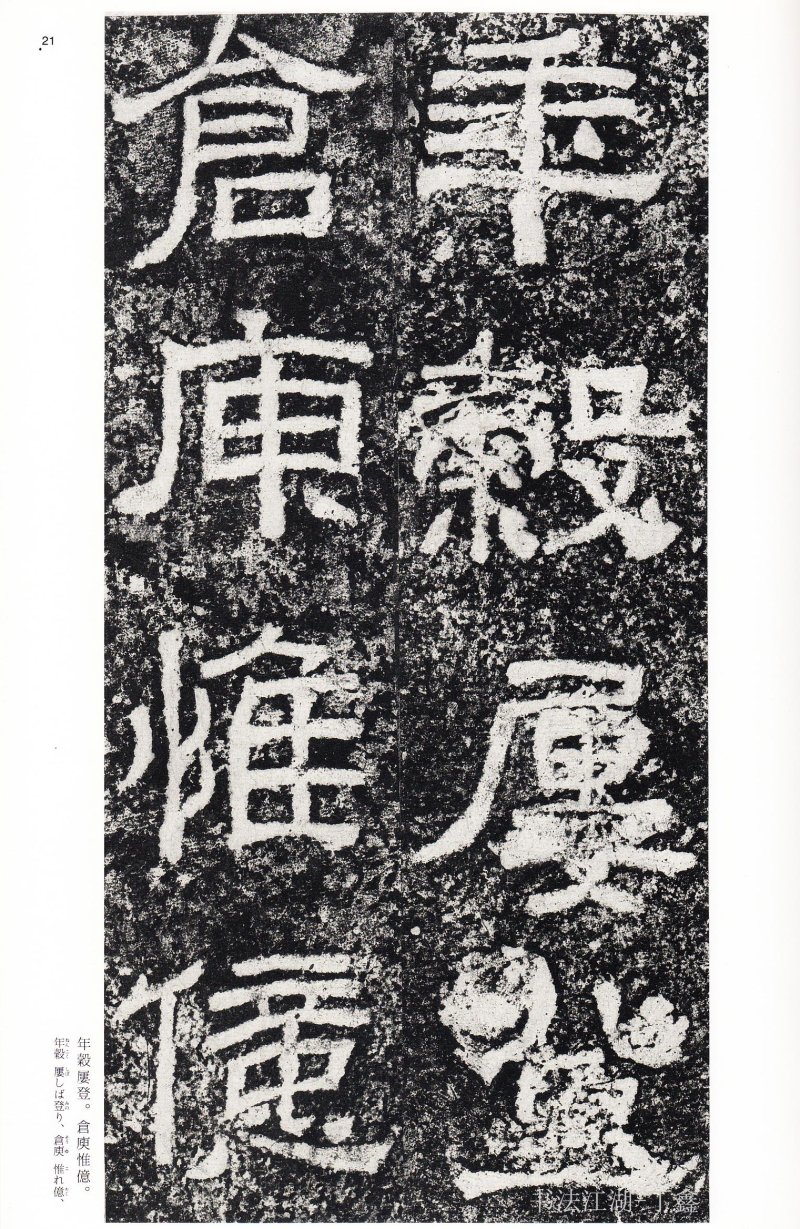 21
年穀屢登
倉庾惟億
年穀屢登。倉庾惟億。
年穀屢しば登り、倉庾惟れ億、
书法江湖 丁鑫